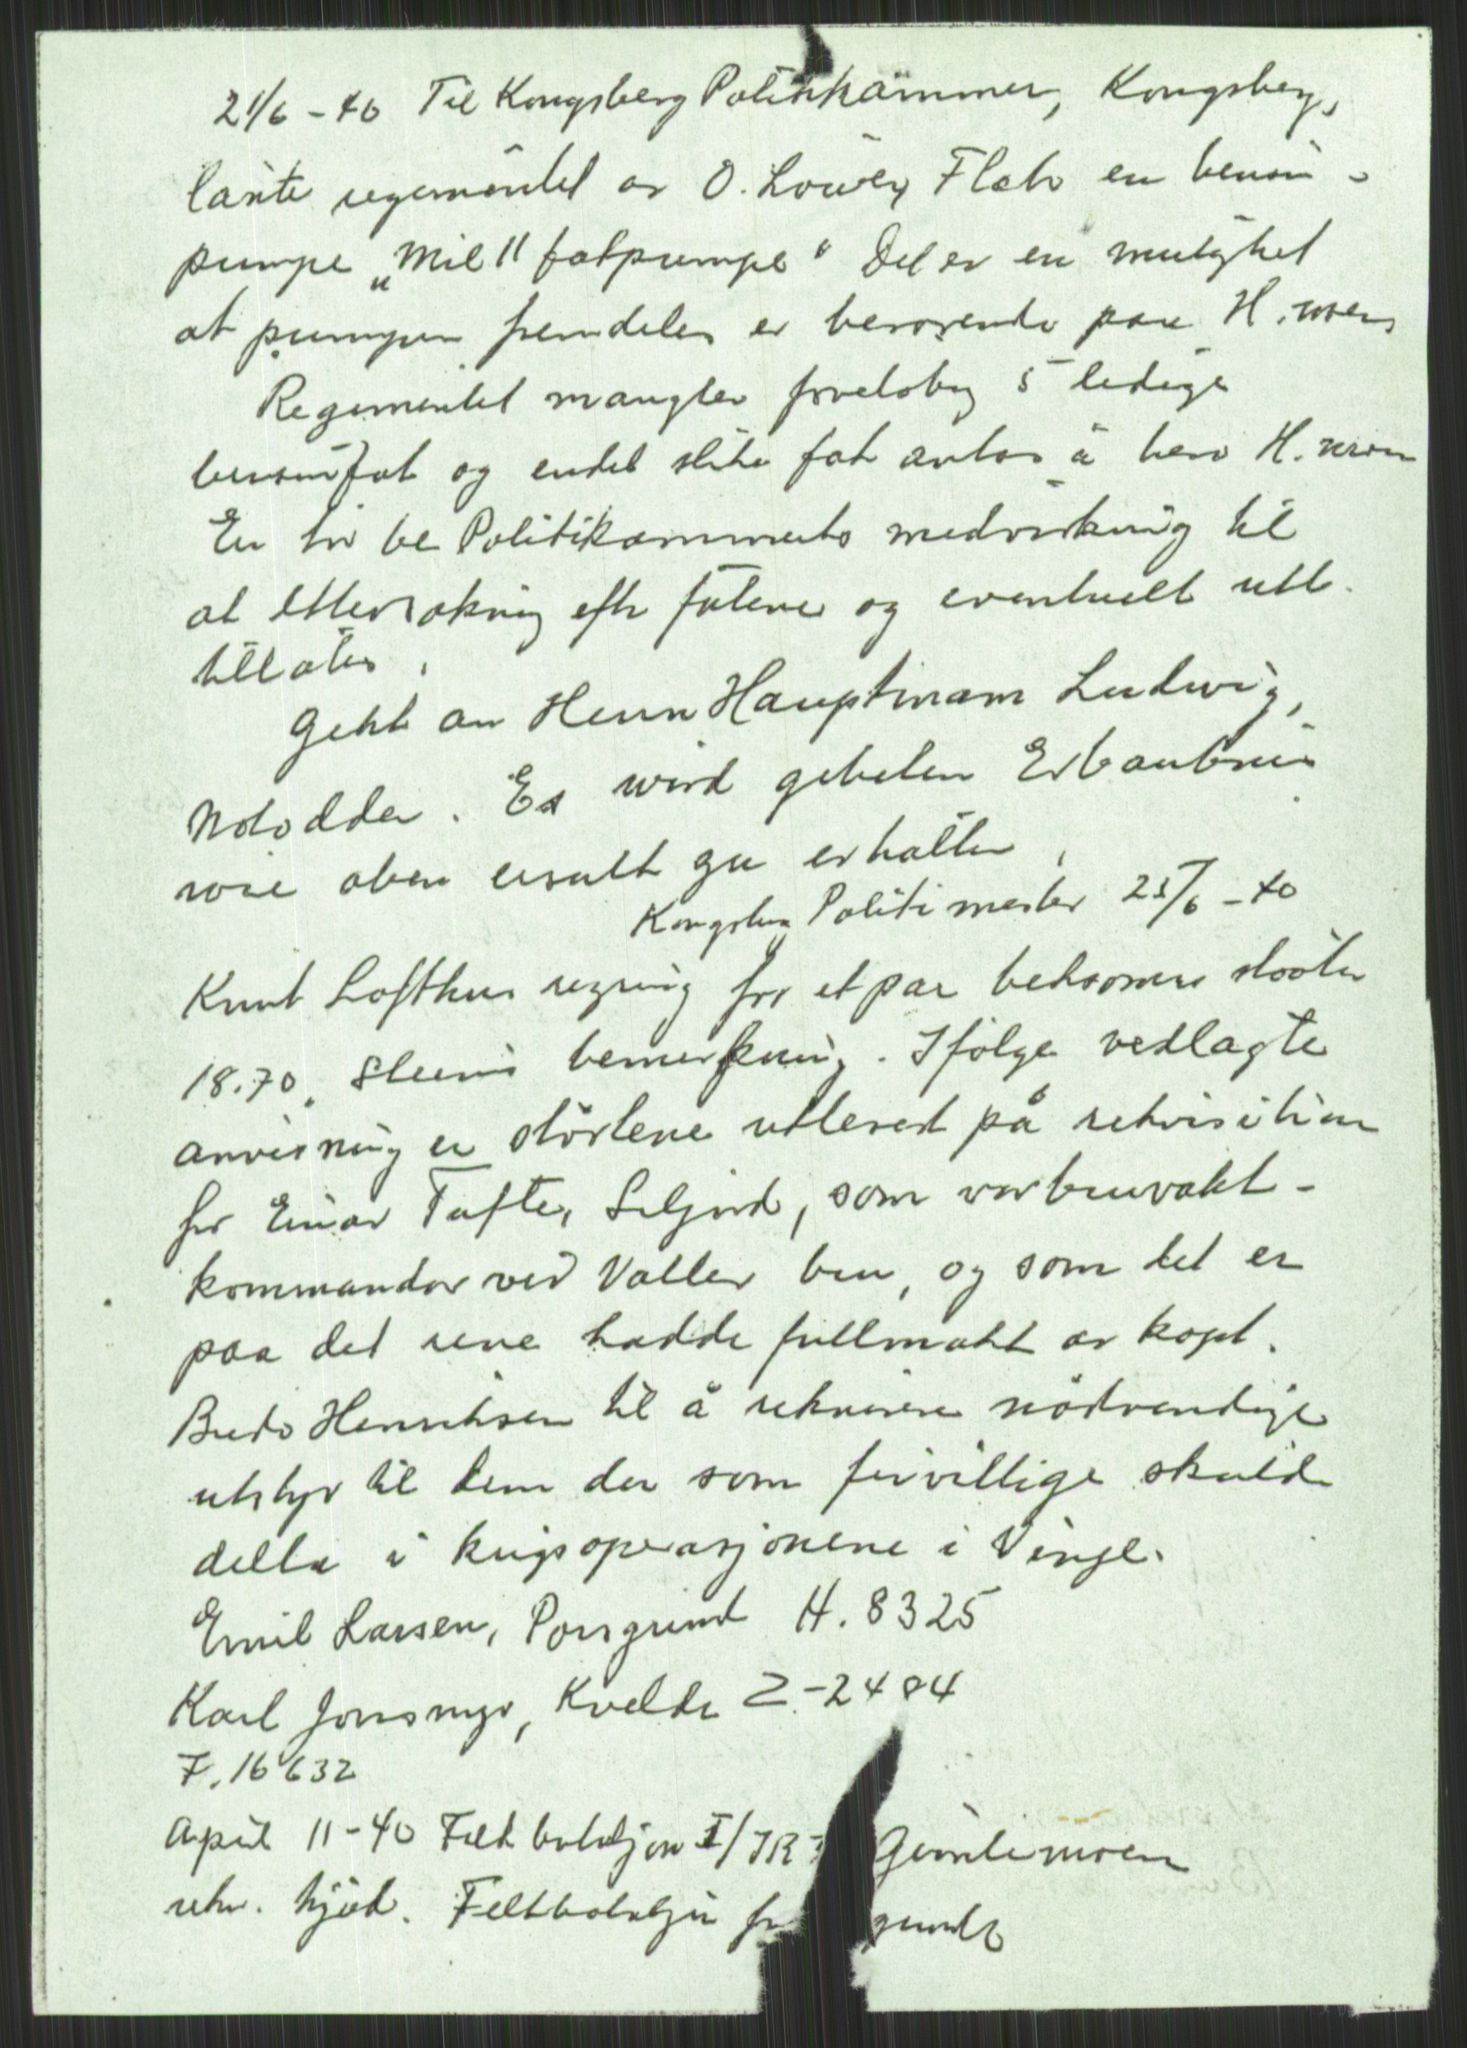 21/6 - 40 Til Kongsberg Politikammer, Kongsberg,
lånte regementet av O. Flåb en bensin-
pumpe „Mil 11 fatpumpe" Det er en mulighet
at pumpen fremdeles er beroende paa H. moen,
Regementet mangler foreløbig 5 ledige
bensinfat og endel slike fat antas å bero H. moen
En tør be Politikammerets medvirkning til
at ettersøkning efter fatene og eventuelt utl.
tillates.
Geht an Herrn Hauptmann Ludwig,
Notodden. Es wird gebeten Erlaubnis
wie oben zu erhalten,
Kongsberg Politimester 25/6 - 40
Knut Lofthus regning for et par beksømstøvler
18.70. Steens bemerkning. Ifølge vedlagte
anvisning er støvlene utlevert på rekvisition
for Einar Tafte, Seljord, som var bruvakt-
kommandør ved Valler bru, og som det er
paa det rene hadde fullmakt av kapt.
Henriksen til å rekvirere nødvendige
utstyr til dem der som frivillige skulde
delta i krigsoperasjonene i Vinje.
Emil Larsen, Porsgrund H. 8325
Karl Jonsmyr, Kvelde Z-2484
F. 16632
April 11-40 Feltbataljon I/IR Gimlemoen
rekv. kjød. Feltbataljon